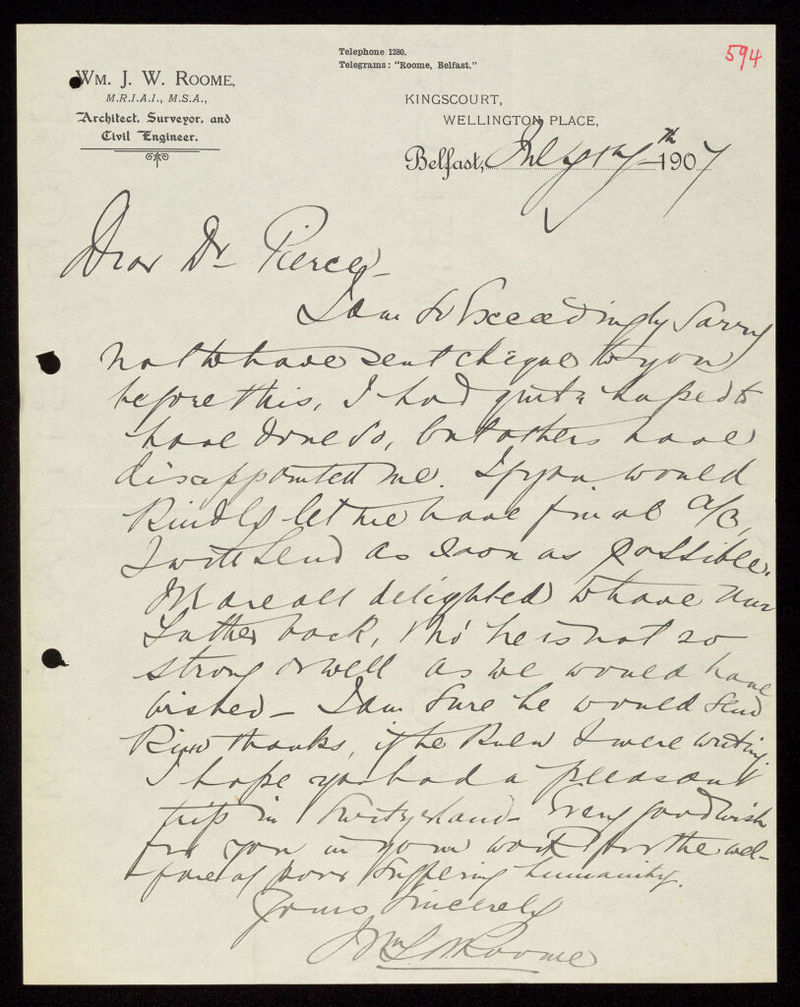 594
Telephone 1280.
Telegrams: "Roome, Belfast."
WM. J. W. ROOME,
M.R.I.A.I., M.S.A.,
Architect, Surveyor, and
Civil Engineer.
KINGSCOURT,
WELLINGTON PLACE,
Belfast, July 17th 1907
Dear Dr Pierce,
I am so Exceedingly Sorry
not to have sent cheque to you
before this, I had quite hoped to
have done so, but others have
disappointed me. If you would
Kindly let me have final a/c,
I will send as soon as possible.
We are all delighted to have
Luther back, tho' he is not so
strong or well as we would have
wished – I am sure he would send
Kind thanks, if he knew I were writing.
I hope you had a pleasant
trip in Switzerland – Every good wish
for you in your work for the wel-
fare of poor suffering humanity.
Yours Sincerely
Wm J W Roome